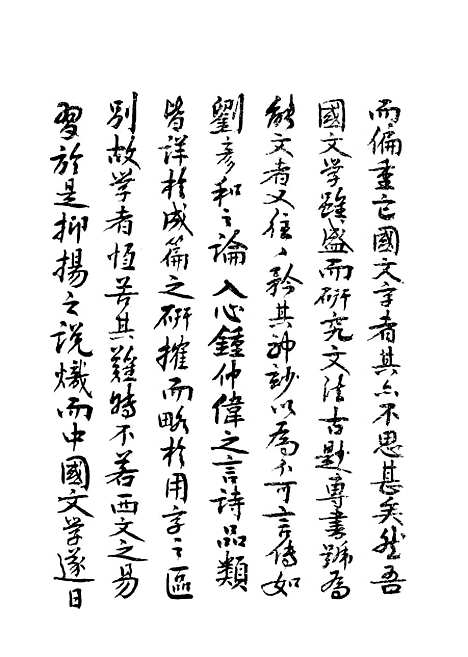 而偏重它國文字者其亦不思甚矣然吾
國文学雖盛而研究文法古尠專書號為
能文者又往往矜其神妙以為不可言傳如
劉彥和之論文心鍾仲偉之言詩品類
皆詳於成篇之研摧而略於用字之區
別故学者恆苦其難時不若西文之易
習於是抑揚之說熾而中國文学遂日